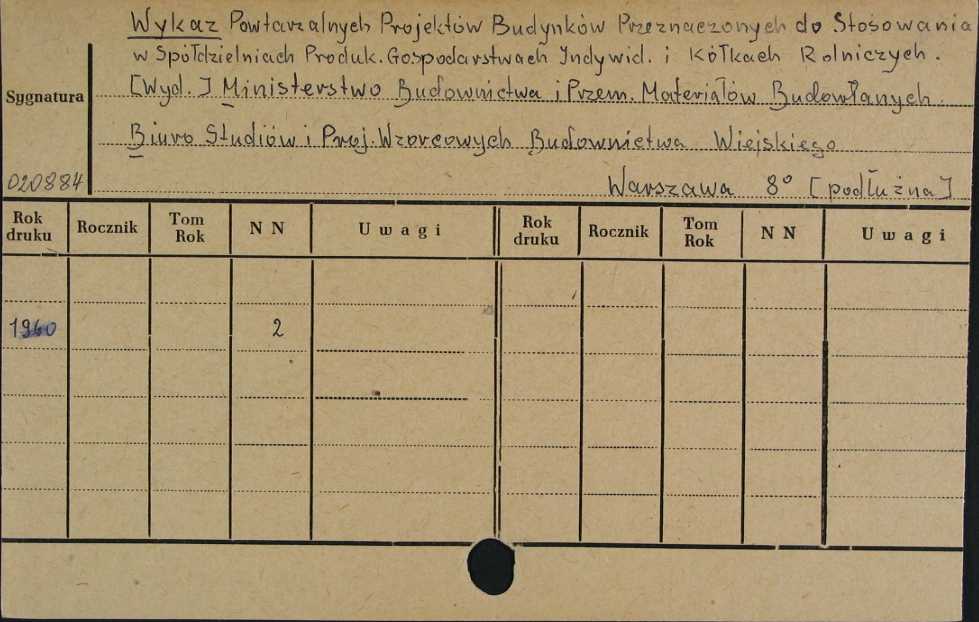 Wykaz Powtarzalnych Projektów Budynków Przeznaczonych do Stosowania
w Spółdzielniach Produk. Gospodarstwach Indywid. i Kółkach Rolniczych.
Sygnatura
[Wyd.] Ministerstwo Budownictwa i Przem. Materiałów Budowlanych.
Biuro Studiów i Proj. Wzorcowych Budownictwa Wiejskiego
020884
Warszawa 8° [podłużna]
Rok druku Rocznik Tom Rok N N Uwagi Rok druku Rocznik Tom Rok N N Uwagi
1960 2